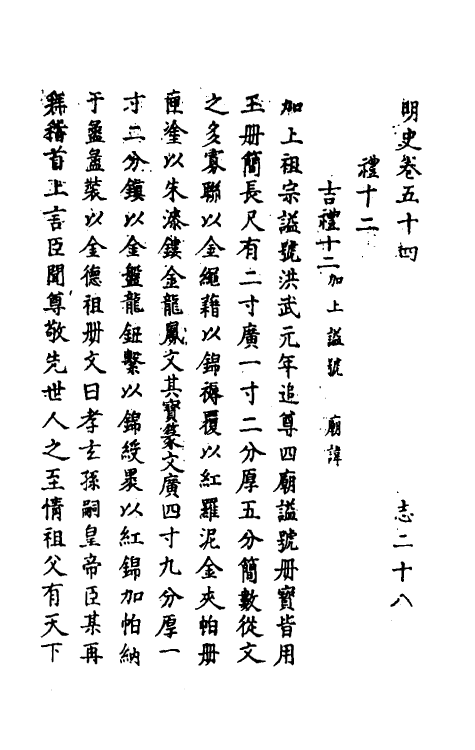 明史卷五十四　志二十八
禮十二
吉禮十二加上諡號　廟諱
加上祖宗諡號洪武元年追尊四廟諡號册寶皆用
玉册簡長尺有二寸廣一寸二分厚五分簡數從文
之多寡聯以金繩藉以錦褥覆以紅羅泥金夾帕册
匣塗以朱漆鏤金龍鳳文其寶篆文廣四寸九分厚一
寸二分鐼以金盤龍鈕繫以錦綬裹以紅錦加帕納
于盝盝裝以金德祖册文曰孝玄孫嗣皇帝臣某再
拜稽首上言臣聞尊敬先世人之至情祖父有天下